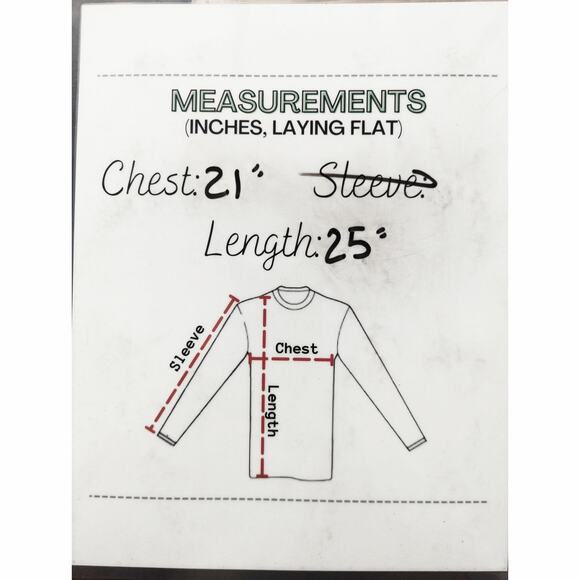 MEASUREMENTS
(INCHES, LAYING FLAT)
Chest: 21" Sleeve:
Length: 25"
Sleeve
Chest
Length